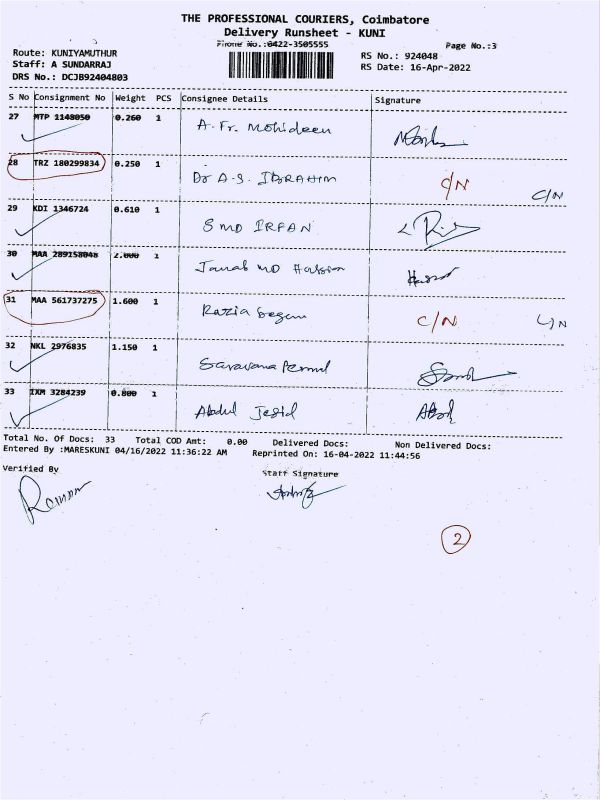 THE PROFESSIONAL COURIERS, Coimbatore
Delivery Runsheet - KUNI
Phone No.:0422-3505555
Page No.:3
Route: KUNIYAMUTHUR
RS No.: 924048
Staff: A SUNDARRAJ
RS Date: 16-Apr-2022
DRS No.: DCJB92404803
S No Consignment No Weight PCS Consignee Details Signature
27 MTP 1148050 0.260 1 A. Fr. Mohideen
28 TRZ 180299834 0.250 1 Dr A.S. IBRAHIM C/N C/N
29 KDI 1346724 0.610 1 S MD IRFAN
30 MAA 289158048 2.000 1 MD
31 MAA 561737275 1.600 1 Razia Begam C/N C/N
32 NKL 2976835 1.150 1 Saravana
33 IXM 3284239 0.800 1 Abdul
Total No. Of Docs: 33 Total COD Amt: 0.00 Delivered Docs: Non Delivered Docs:
Entered By :MARESKUNI 04/16/2022 11:36:22 AM Reprinted On: 16-04-2022 11:44:56
Verified By
Staff Signature
2